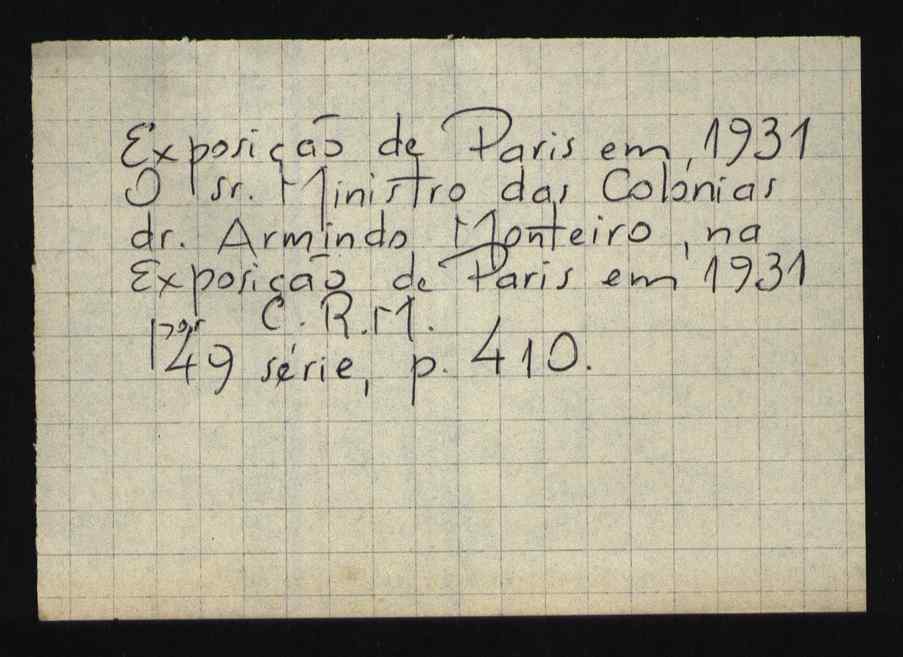 Exposição de Paris em 1931
O sr. Ministro das Colónias
dr. Armindo Monteiro, na
Exposição de Paris em 1931
por C. R. M.
49 série, p. 410.